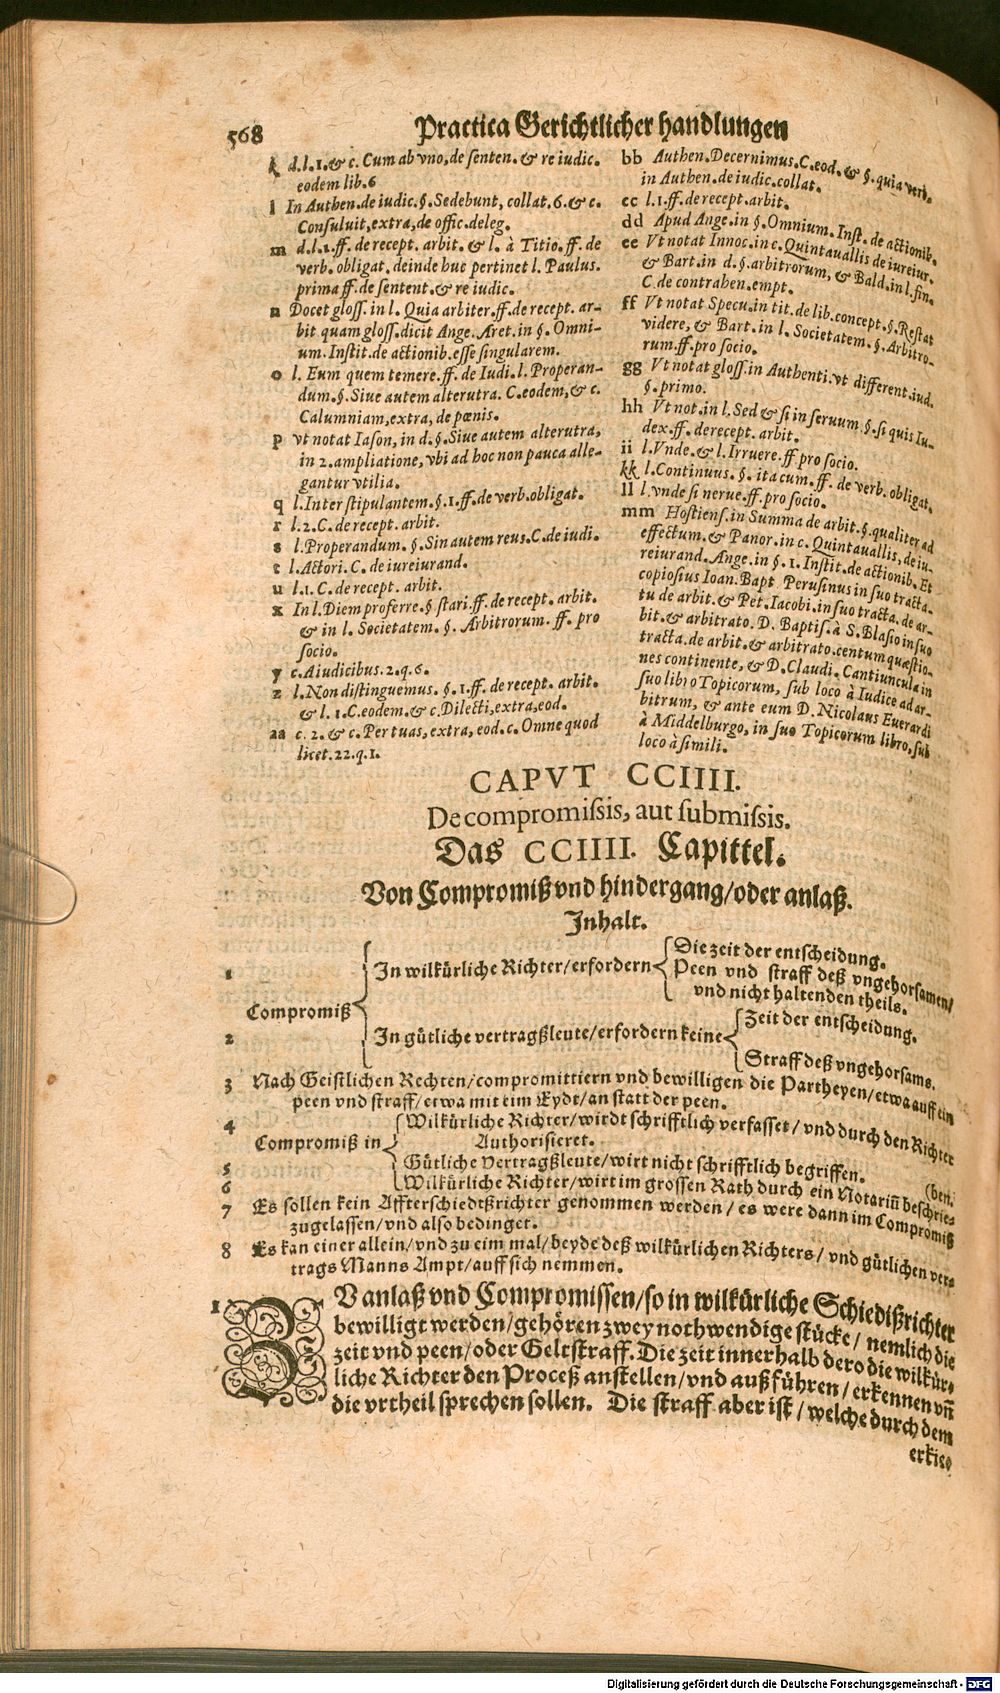 568
Practica Gerichtlicher handlungen
k d.l.1.& c. Cum ab vno, de senten. & re iudic.
eodem lib.6
l In Authen.de iudic.§.Sedebunt, collat.6.& c.
Consuluit,extra,de offic.deleg.
m d.l.1.ff. de recept. arbit. & l. à Titio. ff. de
verb. obligat. deinde huc pertinet l. Paulus.
prima ff. de sentent. & re iudic.
n Docet gloss. in l. Quia arbiter.ff.de recept. ar-
bit. quam gloss. dicit Ange. Aret. in §. Omni-
um. Instit. de actionib. esse singularem.
o l. Eum quem temere.ff. de Iudi.l. Properan-
dum.§. Siue autem alterutra. C.eodem,& c.
Calumniam,extra, de pœnis.
p vt notat Iason, in d.§. Siue autem alterutra,
in 2. ampliatione, vbi ad hoc non pauca alle-
gantur vtilia.
q l.Inter stipulantem.§.1.ff.de verb.obligat.
r l.2.C. de recept. arbit.
s l.Properandum. §. Sin autem reus.C.de iudi.
t l. Actori. C. de iureiurand.
u l.1. C. de recept. arbit.
x In l. Diem proferre.§ stari.ff. de recept. arbit.
& in l. Societatem. §. Arbitrorum. ff. pro
socio.
y c. A iudicibus.2.q.6.
z l.Non distinguemus. §.1.ff. de recept. arbit.
& l. 1.C.eodem.& c.Dilecti,extra,eod.
aa c. 2. & c. Per tuas, extra, eod. c. Omne quod
licet.22.q.1.
bb Authen.Decernimus.C.eod.& §.quia verb.
in Authen.de iudic.collat.
cc l.1.ff.de recept.arbit.
dd Apud Ange.in §.Omnium.Inst.de actionib.
ee Vt notat Innoc.in c.Quintauallis de iureiur.
& Bart.in d.§.arbitrorum, & Bald.in l.fin.
C.de contrahen.empt.
ff Vt notat Specu.in tit.de lib.concept.§.Restat
videre, & Bart. in l. Societatem.§. Arbitro-
rum.ff.pro socio.
gg Vt notat gloss.in Authenti.vt different.iud.
§.primo.
hh Vt not.in l.Sed & si in seruum.§.si quis Iu-
dex.ff. de recept. arbit.
ii l.Vnde.& l.Irruere.ff pro socio.
kk l.Continuus. §. ita cum.ff. de verb. obligat.
ll l.vnde si nerue.ff.pro socio.
mm Hostiens.in Summa de arbit.§.qualiter ad
effectum.& Panor.in c. Quintauallis,de iu-
reiurand.Ange.in §.1.Instit.de actionib. Et
copiosius Ioan.Bapt Perusinus in suo tracta-
tu de arbit.& Pet.Iacobi.in suo tracta.de ar-
bit.& arbitrato. D. Baptis.à S.Blasio in suo
tracta.de arbit.& arbitrato.centum quæstio-
nes continente, & D.Claudi.Cantiuncula in
suo libro Topicorum, sub loco à Iudice ad ar-
bitrum, & ante eum D.Nicolaus Euerardi
à Middelburgo, in suo Topicorum libro,sub
loco à simili.
CAPVT CCIIII.
De compromissis, aut submissis.
Das CCIIII. Capittel.
Von Compromiß vnd hindergang/oder anlaß.
Inhalt.
1 In wilkürliche Richter/erfordern Die zeit der entscheidung.
Peen vnd straff deß vngehorsamen/
vnd nicht haltenden theils.
Compromiß
2 In gütliche vertragßleute/erfordern keine Zeit der entscheidung.
Straff deß vngehorsams.
3 Nach Geistlichen Rechten/compromittiern vnd bewilligen die Partheyen/etwa auff ein
peen vnd straff/etwa mit eim Eydt/an statt der peen.
4 Wilkürliche Richter/wirdt schrifftlich verfasset/vnd durch den Richter
Authorisieret.
Compromiß in
5 Gütliche Vertragßleute/wirt nicht schrifftlich begriffen.
6 Wilkürliche Richter/wirt im grossen Rath durch ein Notariū beschrie-
(ben.
7 Es sollen kein Affterschiedtßrichter genommen werden/es were dann im Compromiß
zugelassen/vnd also bedinget.
8 Es kan einer allein/vnd zu eim mal/beyde deß wilkürlichen Richters/vnd gütlichen ver-
trags Manns Ampt/auff sich nemmen.
1 ZV anlaß vnd Compromissen/so in wilkürliche Schiedißrichter
bewilligt werden/gehören zwey nothwendige stücke/nemlich die
zeit vnd peen/oder Geltstraff. Die zeit innerhalb dero die wilkür-
liche Richter den Proceß anstellen/vnd außführen/erkennen vñ
die vrtheil sprechen sollen. Die straff aber ist/welche durch dem
erkie-
Digitalisierung gefördert durch die Deutsche Forschungsgemeinschaft - DFG